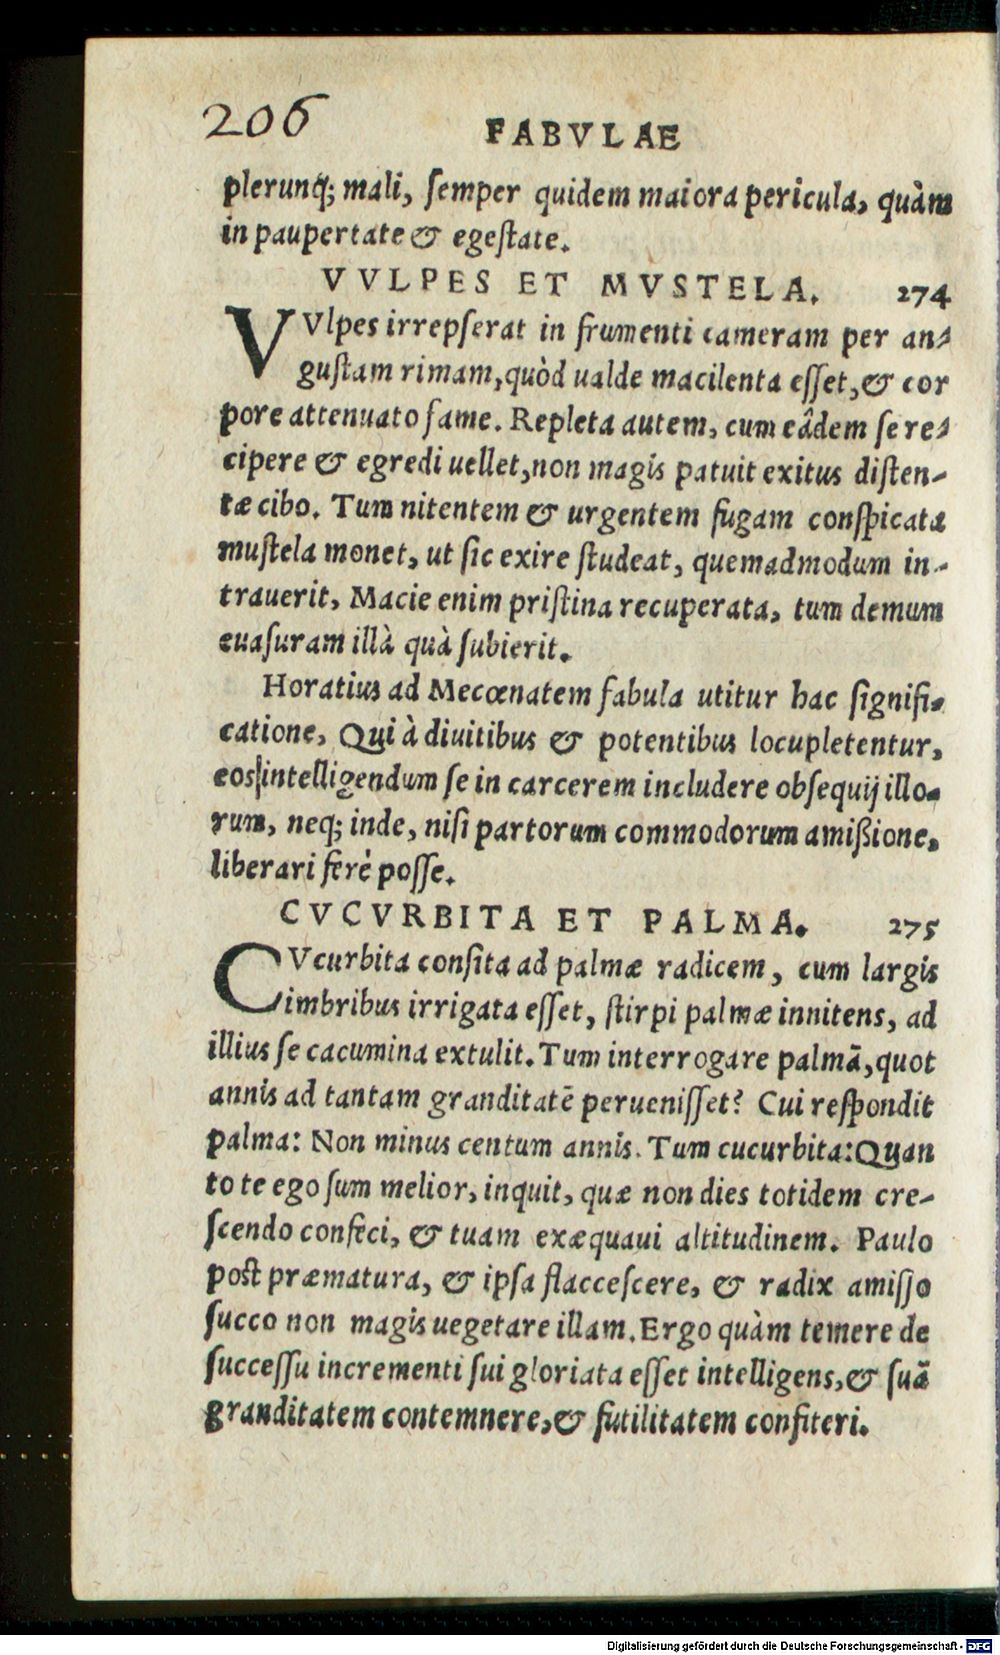 206
FABVLAE
plerunq; mali, ſemper quidem maiora pericula, quàm
in paupertate & egeſtate.
VVLPES ET MVSTELA. 274
VVlpes irrepſerat in frumenti cameram per an-
guſtam rimam, quòd ualde macilenta eſſet, & cor
pore attenuato fame. Repleta autem, cum eâdem ſe re-
cipere & egredi uellet, non magis patuit exitus diſten-
tæ cibo. Tum nitentem & urgentem fugam conſpicata
muſtela monet, ut ſic exire ſtudeat, quemadmodum in-
trauerit, Macie enim priſtina recuperata, tum demum
euaſuram illà quà ſubierit.
Horatius ad Mecœnatem fabula utitur hac ſignifi-
catione, Qui à diuitibus & potentibus locupletentur,
eos intelligendum ſe in carcerem includere obſequij illo-
rum, neq; inde, niſi partorum commodorum amißione,
liberari ferè poſſe.
CVCVRBITA ET PALMA. 275
CVcurbita conſita ad palmæ radicem, cum largis
imbribus irrigata eſſet, ſtirpi palmæ innitens, ad
illius ſe cacumina extulit. Tum interrogare palmā, quot
annis ad tantam granditatē perueniſſet? Cui reſpondit
palma: Non minus centum annis. Tum cucurbita: Quan
to te ego ſum melior, inquit, quæ non dies totidem cre-
ſcendo confeci, & tuam exæquaui altitudinem. Paulo
poſt præmatura, & ipſa flacceſcere, & radix amiſſo
ſucco non magis uegetare illam. Ergo quàm temere de
ſucceſſu incrementi ſui gloriata eſſet intelligens, & ſuā
granditatem contemnere, & futilitatem confiteri.
Digitalisierung gefördert durch die Deutsche Forschungsgemeinschaft - DFG